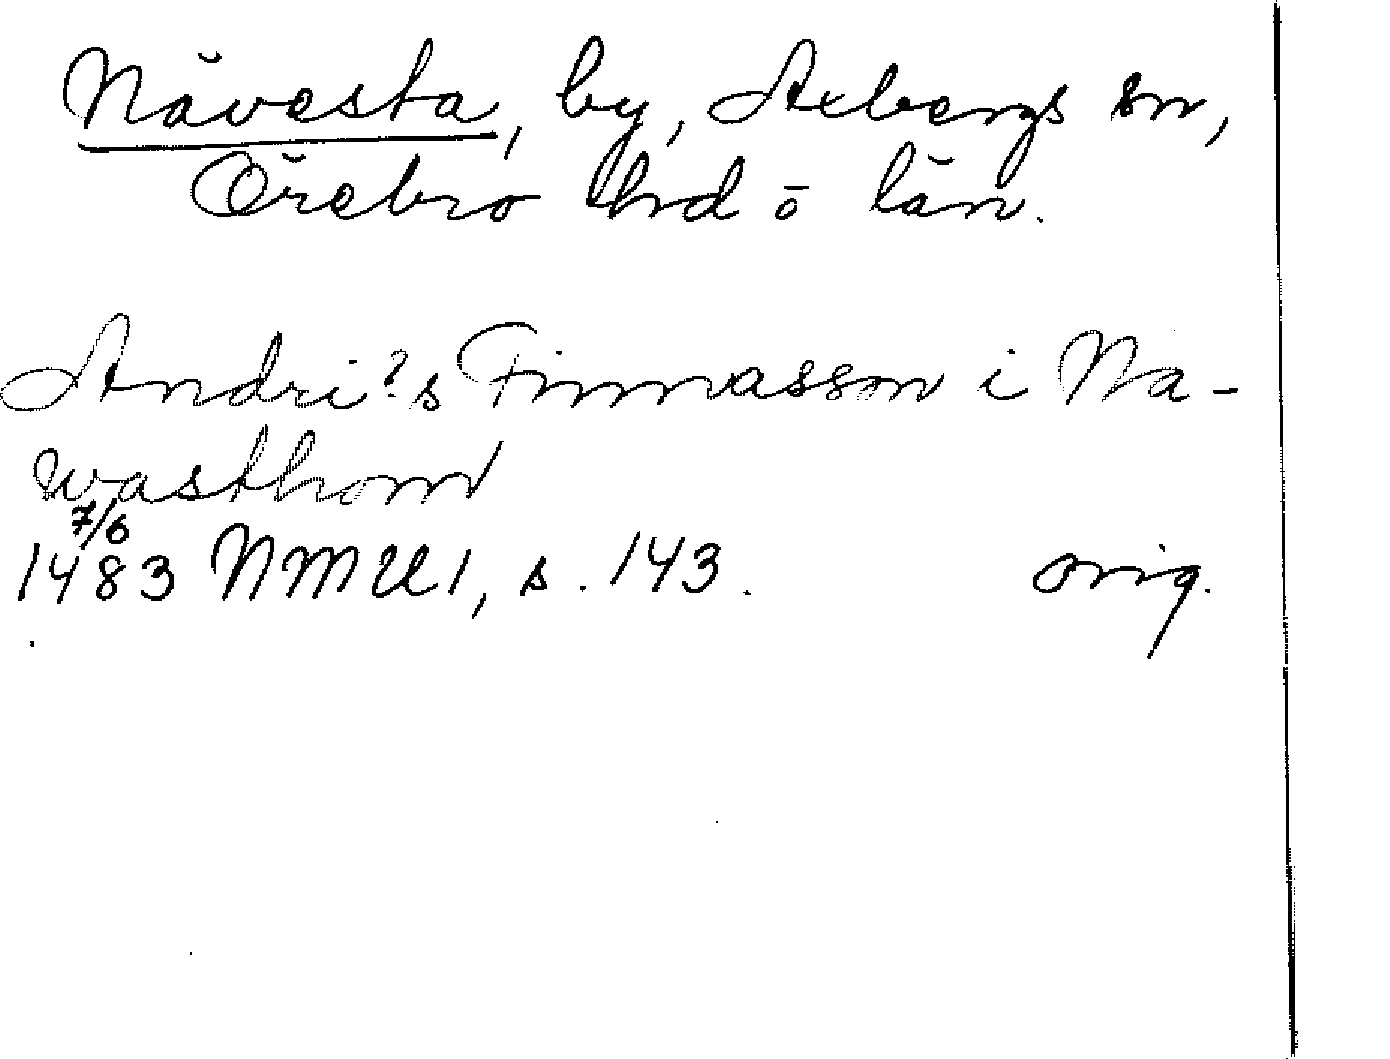 Nåvesta, by, Axbergs sn,
Örebro hrd o län.
Andri?s Finnasson i Na-
wasthom
7/6
1483 NMU1, s. 143. orig.